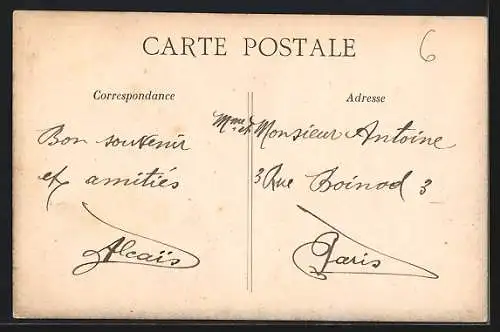 CARTE POSTALE
6
Correspondance
Bon souvenir
et amitiés
Alcaïs
Adresse
Mme et Monsieur Antoine
3 Rue Boinod 3
Paris